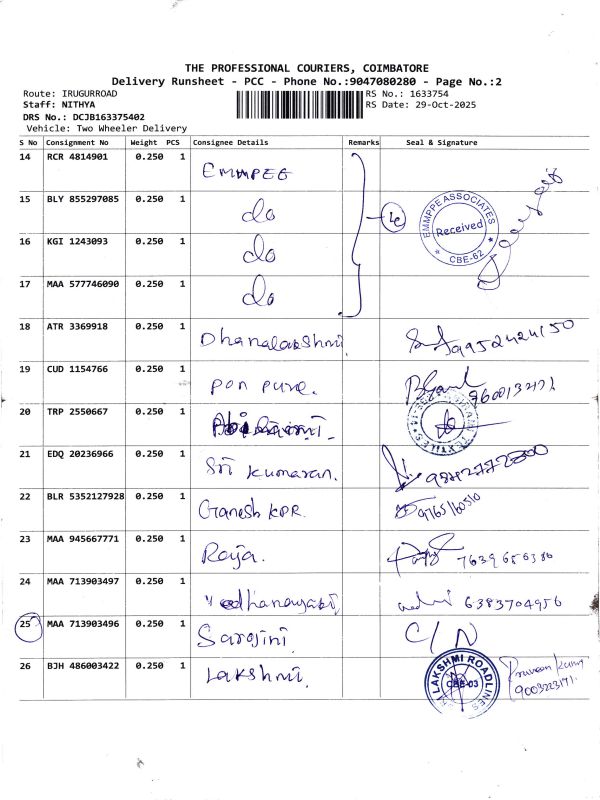 THE PROFESSIONAL COURIERS, COIMBATORE
Delivery Runsheet - PCC - Phone No.:9047080280 - Page No.:2
Route: IRUGURROAD
Staff: NITHYA
DRS No.: DCJB163375402
Vehicle: Two Wheeler Delivery
RS No.: 1633754
RS Date: 29-Oct-2025
S No Consignment No Weight PCS Consignee Details Remarks Seal & Signature
14 RCR 4814901 0.250 1 EMMPEE
15 BLY 855297085 0.250 1 do
EMMPPE ASSOCIATES
Received
CBE-62
16 KGI 1243093 0.250 1 do
17 MAA 577746090 0.250 1 do
18 ATR 3369918 0.250 1 Dhanalakshmi. 9952424150
19 CUD 1154766 0.250 1 Pon Pure.
20 TRP 2550667 0.250 1
21 EDQ 20236966 0.250 1 Sri Kumaran.
22 BLR 5352127928 0.250 1 Ganesh KPR.
23 MAA 945667771 0.250 1 Raja. 7639656386
24 MAA 713903497 0.250 1 6383704956
25 MAA 713903496 0.250 1 Sarojini. C/N
26 BJH 486003422 0.250 1 Lakshmi.
SRI LAKSHMI ROADLINES
CBE-03
Praveen Kumar
9003223171.